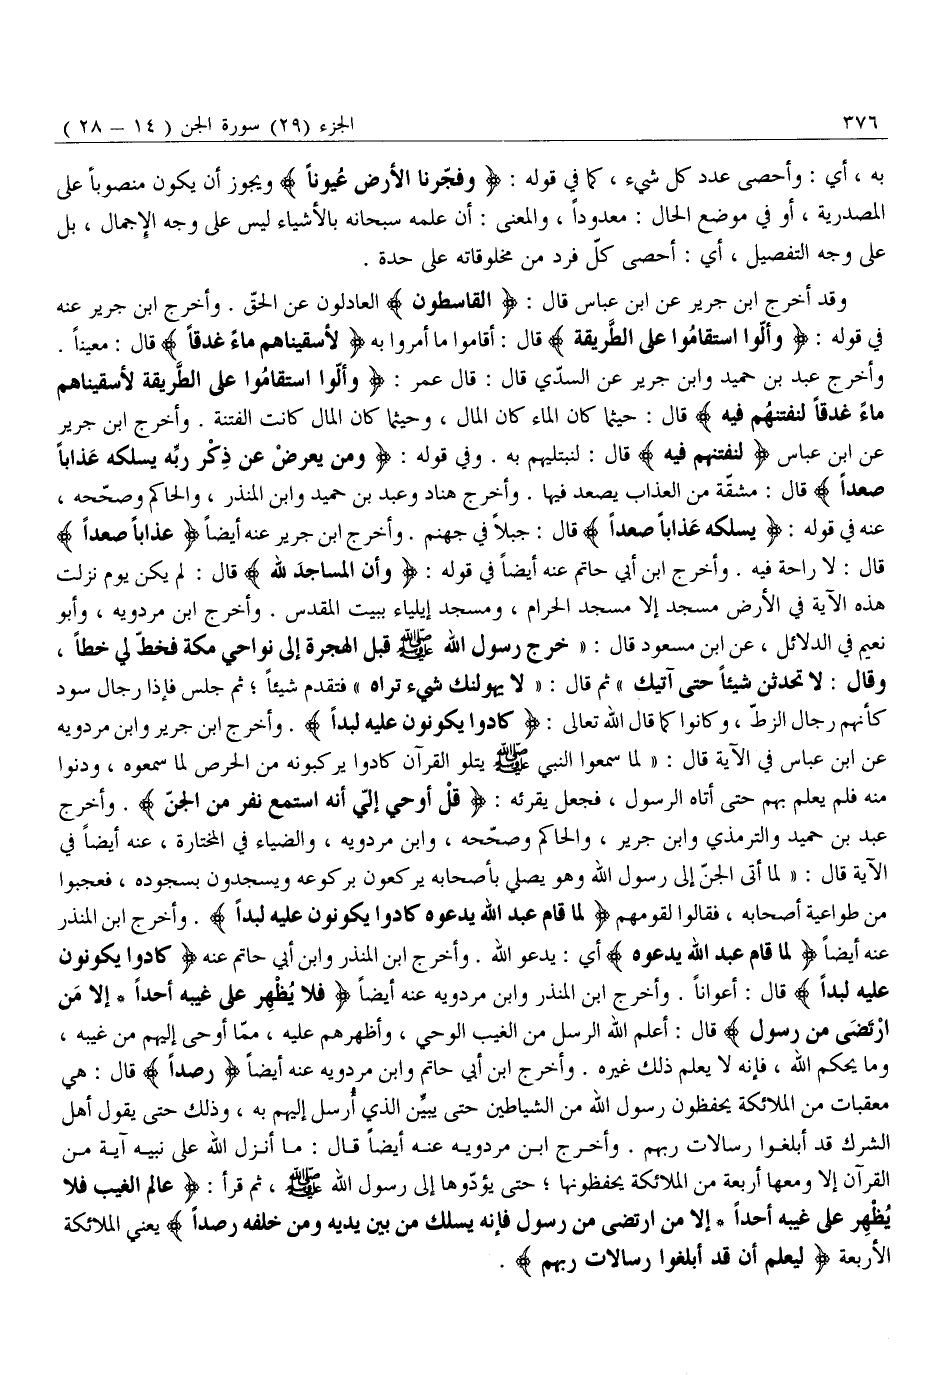 ٣٧٦
الجزء (٢٩) سورة الجن ( ١٤ – ٢٨ )
به ، أي : وأحصى عدد كل شيء ، كما في قوله : ﴿ وفجّرنا الأرض عُيوناً ﴾ ويجوز أن يكون منصوباً على
المصدرية ، أو في موضع الحال : معدوداً ، والمعنى : أن علمه سبحانه بالأشياء ليس على وجه الإجمال ، بل
على وجه التفصيل ، أي : أحصى كلّ فرد من مخلوقاته على حدة .
وقد أخرج ابن جرير عن ابن عباس قال : ﴿ القاسطون ﴾ العادلون عن الحقّ . وأخرج ابن جرير عنه
في قوله : ﴿ وألّوا استقامُوا على الطَّريقة ﴾ قال : أقاموا ما أمروا به ﴿ لأسقيناهم ماءً غدقاً ﴾ قال : معيناً .
وأخرج عبد بن حميد وابن جرير عن السدّي قال : قال عمر : ﴿ وألّوا استقامُوا على الطَّريقة لأسقيناهم
ماءً غدقاً لنفتنهُم فيه ﴾ قال : حيثما كان الماء كان المال ، وحيثما كان المال كانت الفتنة . وأخرج ابن جرير
عن ابن عباس ﴿ لنفتنهم فيه ﴾ قال : لنبتليهم به . وفي قوله : ﴿ ومن يعرضْ عن ذِكْر ربِّه يسلكه عَذاباً
صعداً ﴾ قال : مشقّة من العذاب يصعد فيها . وأخرج هناد وعبد بن حميد وابن المنذر ، والحاكم وصحّحه ،
عنه في قوله : ﴿ يسلكه عَذاباً صعداً ﴾ قال : جبلاً في جهنم . وأخرج ابن جرير عنه أيضاً ﴿ عذاباً صعداً ﴾
قال : لا راحة فيه . وأخرج ابن أبي حاتم عنه أيضاً في قوله : ﴿ وأن المساجدَ لله ﴾ قال : لم يكن يوم نزلت
هذه الآية في الأرض مسجد إلا مسجد الحرام ، ومسجد إيلياء ببيت المقدس . وأخرج ابن مردويه ، وأبو
نعيم في الدلائل ، عن ابن مسعود قال : « خرج رسول الله ﷺ قبل الهجرة إلى نواحي مكة فخطّ لي خطاً ،
وقال : لا تحدثن شيئاً حتى آتيك » ثم قال : « لا يهولنك شيء تراه » فتقدم شيئاً ؛ ثم جلس فإذا رجال سود
كأنهم رجال الزطّ ، وكانوا كما قال الله تعالى : ﴿ كادوا يكونون عليه لبداً ﴾ . وأخرج ابن جرير وابن مردويه
عن ابن عباس في الآية قال : « لما سمعوا النبي ﷺ يتلو القرآن كادوا يركبونه من الحرص لما سمعوه ، ودنوا
منه فلم يعلم بهم حتى أتاه الرسول ، فجعل يقرئه : ﴿ قلْ أوحي إليّ أنه استمع نفر من الجنّ ﴾ . وأخرج
عبد بن حميد والترمذي وابن جرير ، والحاكم وصحّحه ، وابن مردويه ، والضياء في المختارة ، عنه أيضاً في
الآية قال : « لما أتى الجنّ إلى رسول الله وهو يصلي بأصحابه يركعون بركوعه ويسجدون بسجوده ، فعجبوا
من طواعية أصحابه ، فقالوا لقومهم ﴿ لما قام عبد الله يدعوه كادوا يكونون عليه لبداً ﴾ . وأخرج ابن المنذر
عنه أيضاً ﴿ لما قام عبد الله يدعوه ﴾ أي : يدعو الله . وأخرج ابن المنذر وابن أبي حاتم عنه ﴿ كادوا يكونون
عليه لبداً ﴾ قال : أعواناً . وأخرج ابن المنذر وابن مردويه عنه أيضاً ﴿ فلا يُظْهِر على غيبه أحداً * إلا مَن
ارْتَضَى من رسول ﴾ قال : أعلم الله الرسل من الغيب الوحي ، وأظهرهم عليه ، ممّا أوحى إليهم من غيبه ،
وما يحكم الله ، فإنه لا يعلم ذلك غيره . وأخرج ابن أبي حاتم وابن مردويه عنه أيضاً ﴿ رصداً ﴾ قال : هي
معقبات من الملائكة يحفظون رسول الله من الشياطين حتى يبيِّن الذي أُرسل إليهم به ، وذلك حتى يقول أهل
الشرك قد أبلغوا رسالات ربهم . وأخرج ابن مردويه عنه أيضاً قال : ما أنزل الله على نبيه آية من
القرآن إلا ومعها أربعة من الملائكة يحفظونها ؛ حتى يؤدّوها إلى رسول الله ﷺ ، ثم قرأ : ﴿ عالم الغيب فلا
يُظْهِر على غيبه أحداً * إلا من ارتضى من رسول فإنه يسلك من بين يديه ومن خلفه رصداً ﴾ يعني الملائكة
الأربعة ﴿ ليعلم أن قد أبلغوا رسالات ربهم ﴾ .